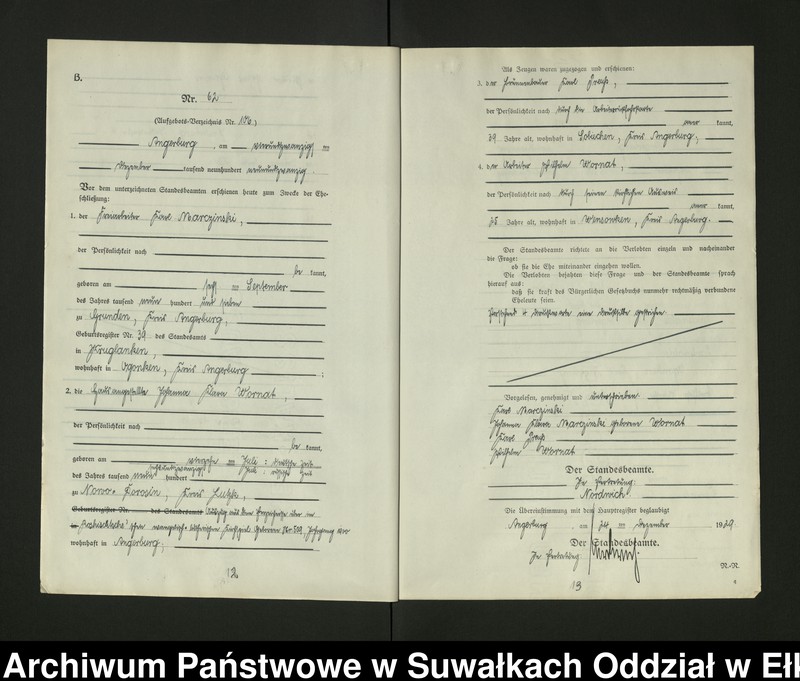 B.
Nr. 62
(Aufgebots-Verzeichnis Nr. 186)
Angerburg, am vierundzwanzigsten
Dezember tausend neunhundert neunundzwanzig.
Vor dem unterzeichneten Standesbeamten erschienen heute zum Zwecke der Ehe-
schließung:
1. der Karl Marczinski,
der Persönlichkeit nach
be kannt,
geboren am September
des Jahres tausend neun hundert und sieben
zu Grunden, Kreis Angerburg,
Geburtsregister Nr. 39 des Standesamts
in Kruglanken,
wohnhaft in Ogonken, Kreis Angerburg;
2. die Hausangestellte Johanna Klara Wornat,
der Persönlichkeit nach
be kannt,
geboren am Juli
des Jahres tausend neun hundert
zu Kreis Lutzk,
Geburtsregister Nr. des Standesamts Auszug aus dem
in
wohnhaft in Angerburg,
12
Als Zeugen waren zugezogen und erschienen:
3. der Brunnenbauer Karl
der Persönlichkeit nach durch die
kannt,
39 Jahre alt, wohnhaft in Kreis Angerburg;
4. der Arbeiter Wilhelm Wornat,
der Persönlichkeit nach durch seinen Ausweis
kannt,
Jahre alt, wohnhaft in Wensowken, Kreis Angerburg.
Der Standesbeamte richtete an die Verlobten einzeln und nacheinander
die Frage:
ob sie die Ehe miteinander eingehen wollen.
Die Verlobten bejahten diese Frage und der Standesbeamte sprach
hierauf aus:
daß sie kraft des Bürgerlichen Gesetzbuchs nunmehr rechtmäßig verbundene
Eheleute seien.
Vorstehend 4 Druckworte eine Druckstelle gestrichen.
Vorgelesen, genehmigt und unterschrieben
Karl Marczinski
Johanna Klara Marczinski geborene Wornat
Karl
Wilhelm Wornat
Der Standesbeamte.
In Vertretung:
Nordwich
Die Übereinstimmung mit dem Hauptregister beglaubigt
Angerburg, am 24 ten Dezember 1929
Der Standesbeamte.
In Vertretung
N.-N.
13
Archiwum Państwowe w Suwałkach Oddział w Ełk